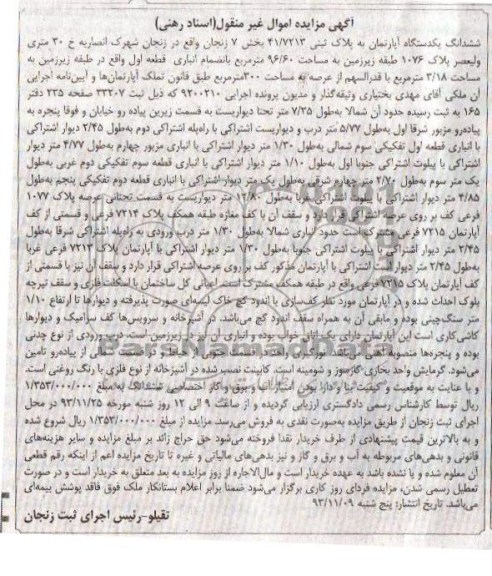 آگهی مزایده اموال غیر منقول(اسناد رهنی)
ششدانگ یکدستگاه آپارتمان به پلاک ثبتی ۴۱/۷۲۱۳ بخش ۷ زنجان واقع در زنجان شهرک انصاریه خ ۳۰ متری
ولیعصر پلاک ۱۰۷۶ طبقه زیرزمین به مساحت ۹۶/۶۰ مترمربع بانضمام انباری قطعه اول واقع در طبقه زیرزمین به
مساحت ۳/۱۸ مترمربع با قدرالسهم از عرصه به مساحت ۳۰۰مترمربع طبق قانون تملک آپارتمان‌ها و آیین‌نامه اجرایی
آن ملکی آقای مهدی بختیاری وثیقه‌گذار و مدیون پرونده اجرایی ۹۲۰۰۲۱۰ که ذیل ثبت ۳۳۲۰۷ صفحه ۲۳۵ دفتر
۱۶۵ به ثبت رسیده حدود آن شمالا به‌طول ۷/۳۵ متر تحتا دیواریست به قسمت زیرین پیاده رو خیابان و فوقا پنجره به
پیاده‌رو مزبور شرقا اول به‌طول ۵/۷۷ متر درب و دیواریست اشتراکی با راه‌پله اشتراکی دوم به‌طول ۲/۴۵ دیوار اشتراکی
با انباری قطعه اول تفکیکی سوم شمالی به‌طول ۱/۳۰ متر دیوار اشتراکی با انباری مزبور چهارم به‌طول ۴/۷۷ متر دیوار
اشتراکی با پیلوت اشتراکی جنوبا اول به‌طول ۱/۱۰ متر دیوار اشتراکی با انباری قطعه سوم تفکیکی دوم غربی به‌طول
یک متر سوم به‌طول ۲/۷۰ متر چهارم شرقی به‌طول یک متر دیوار اشتراکی با انباری قطعه دوم تفکیکی پنجم به‌طول
۴/۸۵ متر دیوار اشتراکی با پیلوت اشتراکی غربا به‌طول ۱۲/۸۰ متر دیواریست به قسمت تحتانی عرصه پلاک ۱۰۷۷
فرعی کف بر روی عرصه اشتراکی قرار دارد و سقف آن با کف مغازه طبقه همکف پلاک ۷۲۱۴ فرعی و قسمتی از کف
آپارتمان ۷۲۱۵ فرعی مشترک است حدود انباری شمالا به‌طول ۱/۳۰ متر درب ورودی به راه‌پله اشتراکی شرقا به‌طول
۲/۴۵ متر دیوار اشتراکی با پیلوت اشتراکی جنوبا به‌طول ۱/۳۰ متر دیوار اشتراکی با آپارتمان پلاک ۷۲۱۳ فرعی غربا
به‌طول ۲/۴۵ متر دیواریست اشتراکی با آپارتمان مذکور کف بر روی عرصه اشتراکی قرار دارد و سقف آن نیز با قسمتی از
کف آپارتمان پلاک ۷۲۱۵ فرعی واقع در طبقه همکف مشترک است. اعیانی کل ساختمان با اسکلت فلزی و سقف تیرچه
بلوک احداث شده و در آپارتمان مورد نظر کف‌سازی با اندود گچ خاک لیسه‌ای صورت پذیرفته و دیوارها تا ارتفاع ۱/۱۰
متر سنگ‌چینی بوده و مابقی آن به همراه سقف اندود گچ می‌باشد. در آشپزخانه و سرویس‌ها کف سرامیک و دیوارها
کاشی‌کاری است این آپارتمان دارای یک اتاق خواب بوده و انباری آن نیز در زیرزمین است. درب ورودی از نوع چدنی
بوده و پنجره‌ها منصوبه فلزی می‌باشد نورگیری واحد از سمت جنوبی و حیاط و از سمت شمالی از پیاده‌رو تامین
می‌شود. گرمایش واحد بخاری گازسوز و شومینه است. کابینت نصب شده در آشپزخانه از نوع فلزی با رنگ روغنی است.
و با عنایت به موقعیت و کیفیت بنا و دارا بودن امتیاز آب و برق و گاز اختصاصی ششدانگ به مبلغ ۱/۳۵۳/۰۰۰/۰۰۰
ریال توسط کارشناس رسمی دادگستری ارزیابی گردیده و از ساعت ۹ الی ۱۲ روز شنبه مورخه ۹۳/۱۱/۲۵ در محل
اجرای ثبت زنجان از طریق مزایده به‌صورت نقدی به فروش می‌رسد. مزایده از مبلغ ۱/۳۵۳/۰۰۰/۰۰۰ ریال شروع شده
و به بالاترین قیمت پیشنهادی از طرف خریدار نقدا فروخته می‌شود حق حراج زائد بر مبلغ مزایده و سایر هزینه‌های
قانونی و بدهی‌های مربوطه به آب و برق و گاز و نیز بدهی‌های مالیاتی و غیره تا تاریخ مزایده اعم از اینکه رقم قطعی
آن معلوم شده و یا نشده باشد به عهده خریدار است و مال‌الاجاره از روز مزایده به بعد متعلق به خریدار است و در صورت
تعطیل رسمی شدن، مزایده فردای روز کاری برگزار می‌شود ضمنا برابر اعلام بستانکار ملک فوق فاقد پوشش بیمه‌ای
می‌باشد. تاریخ انتشار: پنج شنبه ۹۳/۱۱/۰۹
تقیلو-رئیس اجرای ثبت زنجان